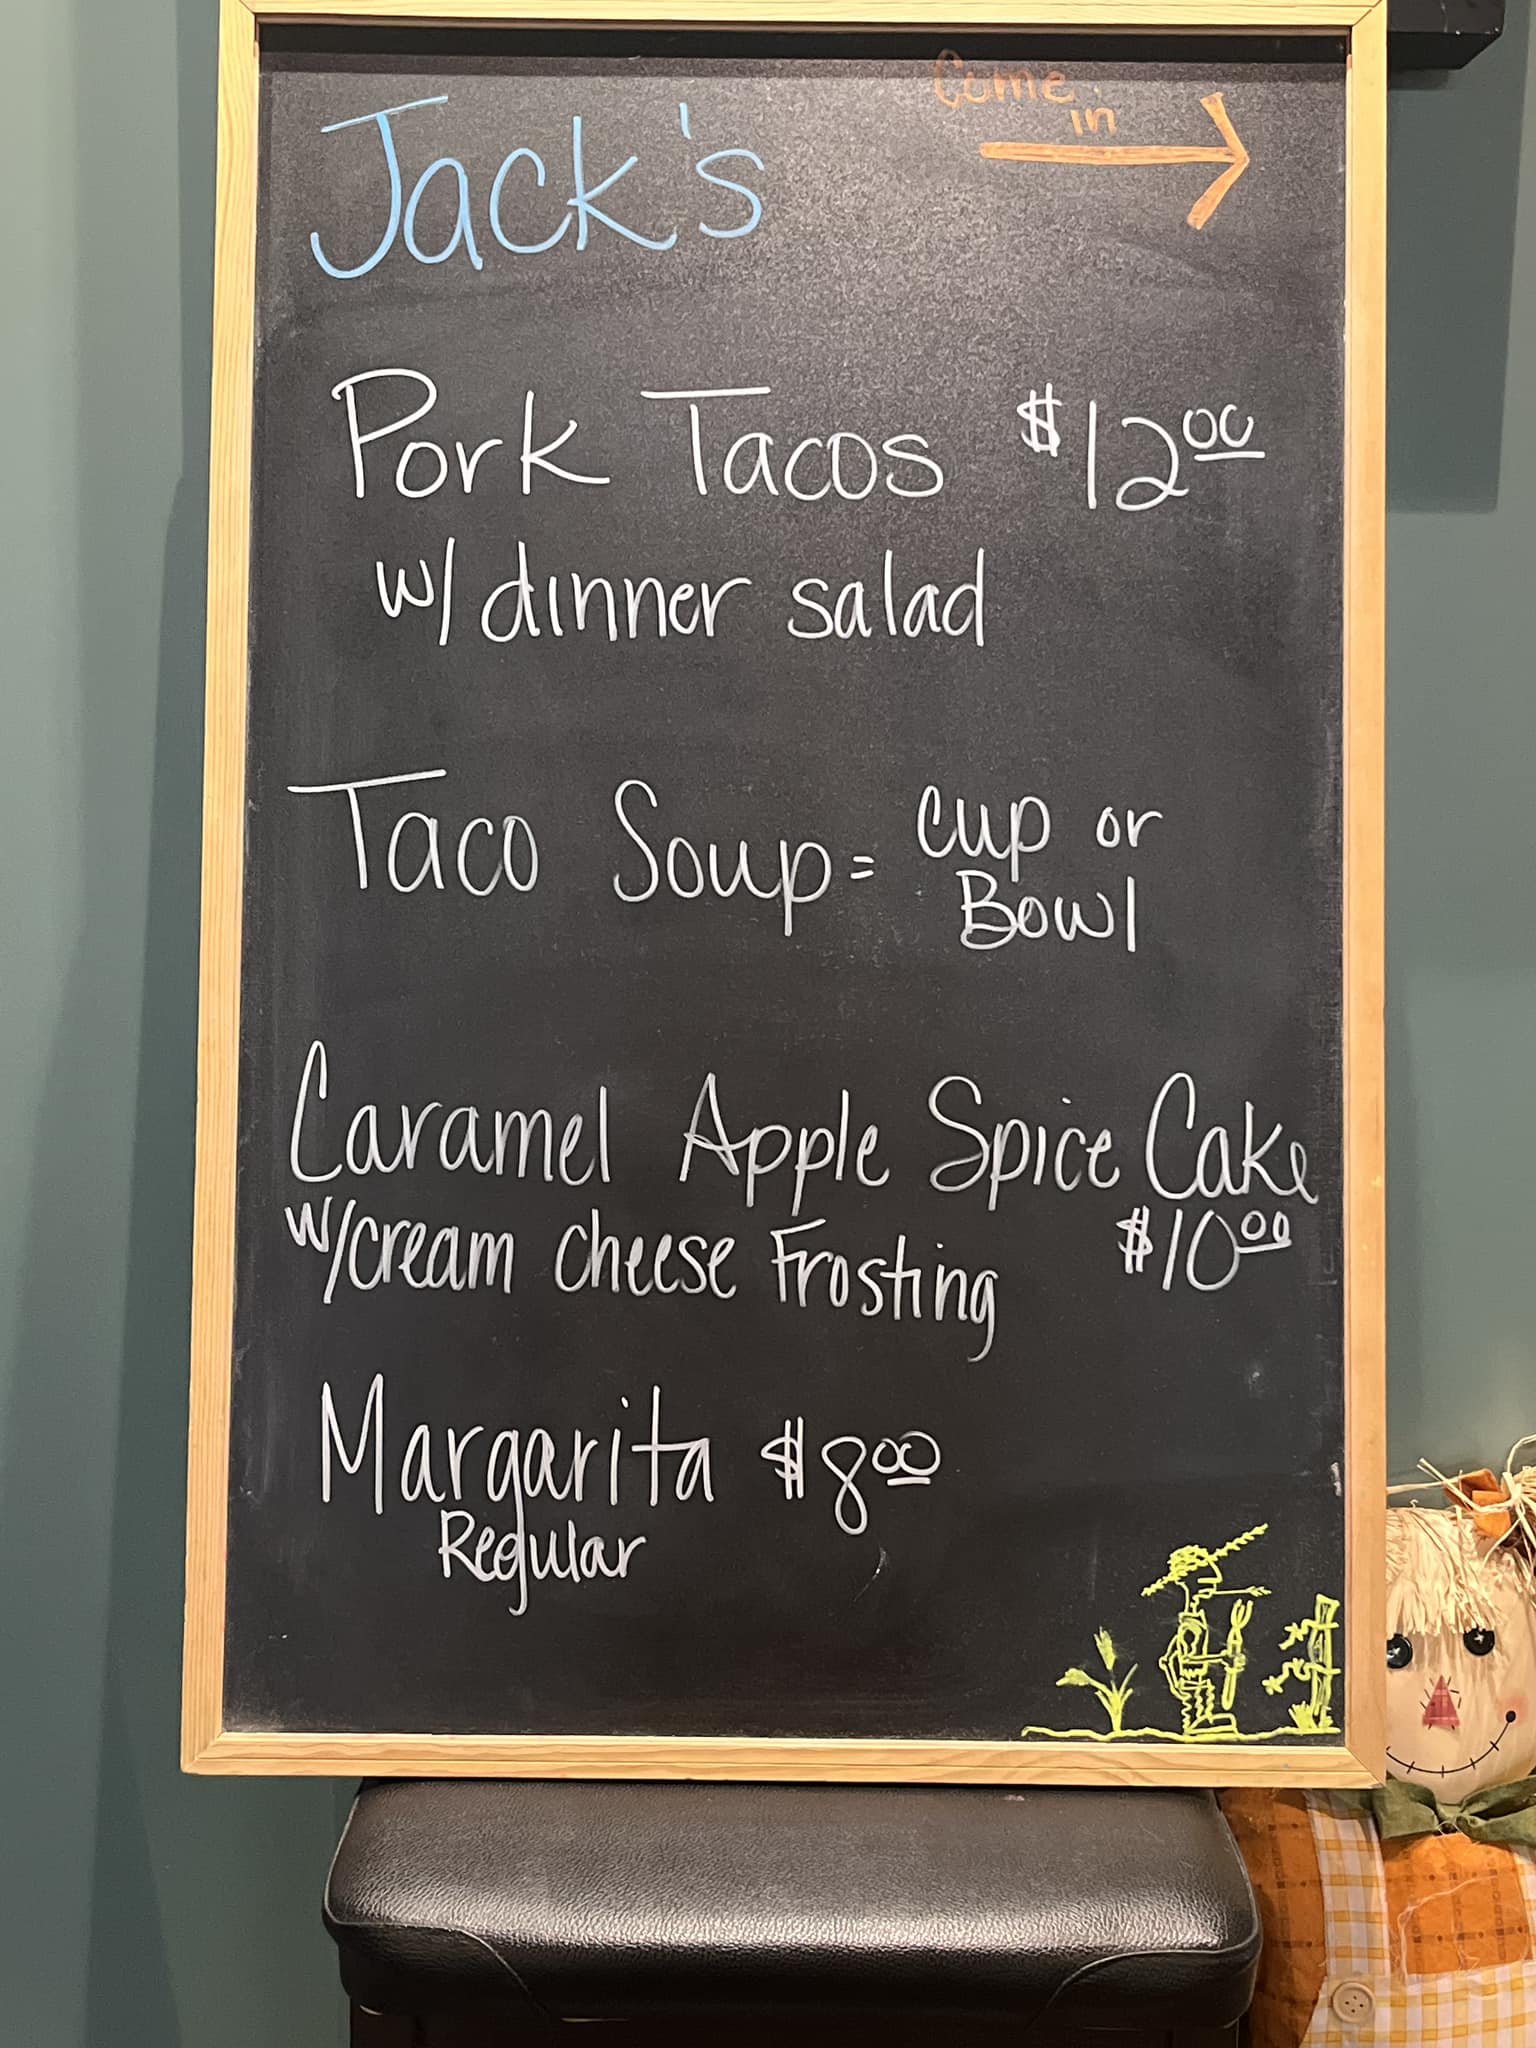 Come
in
Jack's
Pork Tacos $12.00
w/ dinner salad
Taco Soup = cup or
Bowl
Caramel Apple Spice Cake
w/cream cheese Frosting $10.00
Margarita $8.00
Regular